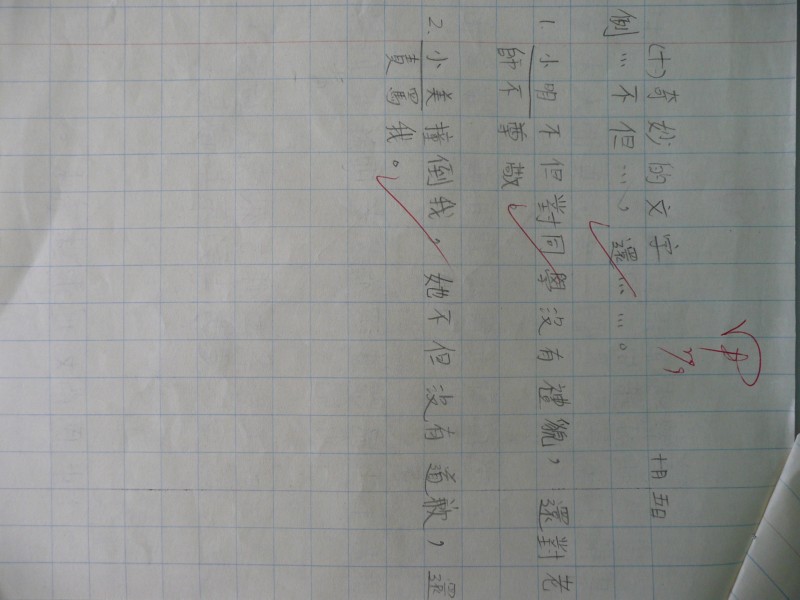 (十)奇妙的文字 十月五日
例…不但…，還……。
1. 小明不但對同學沒有禮貌，還對老
師不尊敬。
2. 小美撞倒我，她不但沒有道歉，還
責罵我。